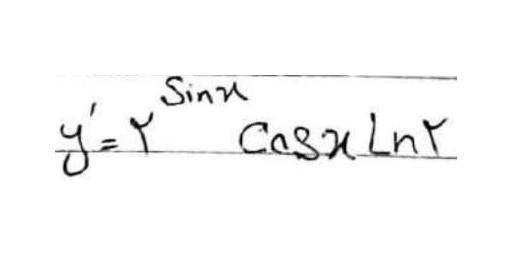 y' = ۲^Sinx Cosx Ln۲